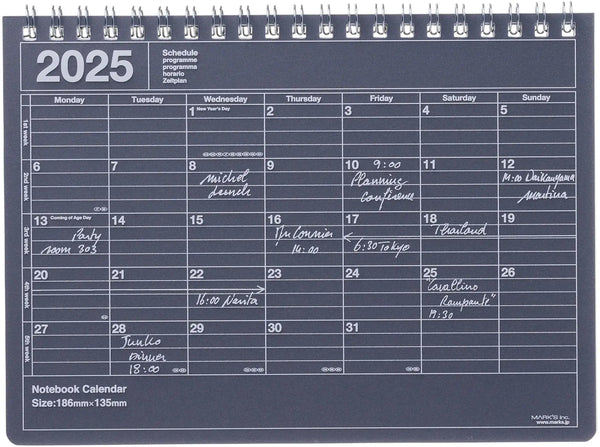 2025
Schedule
programme
programma
horario
Zeitplan
Monday Tuesday Wednesday Thursday Friday Saturday Sunday
1st week
1 New Year's Day 2 3 4 5
2nd week
6 7 8 9 10 9:00 11 12
michel Planning 14:00 Daikanyama
Lunch Conférence Martina
3rd week
13 Coming of Age Day 14 15 16 17 18 19
Party Thailand
room 303 14:00 6:30 Tokyo
4th week
20 21 22 23 24 25 26
"Cavallino
16:00 Narita Rampante"
19:30
5th week
27 28 29 30 31
Junko
Dinner
18:00
Notebook Calendar
Size:186mm×135mm
MARK'S Inc.
www.marks.jp